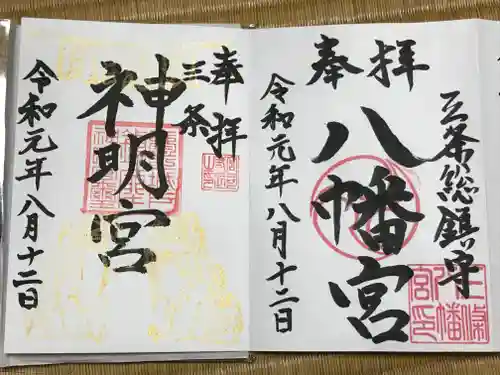 三条総鎮守
奉拝
八幡宮
令和元年八月十二日
三條
八幡
宮印
奉拝
三条
神明宮
令和元年八月十二日